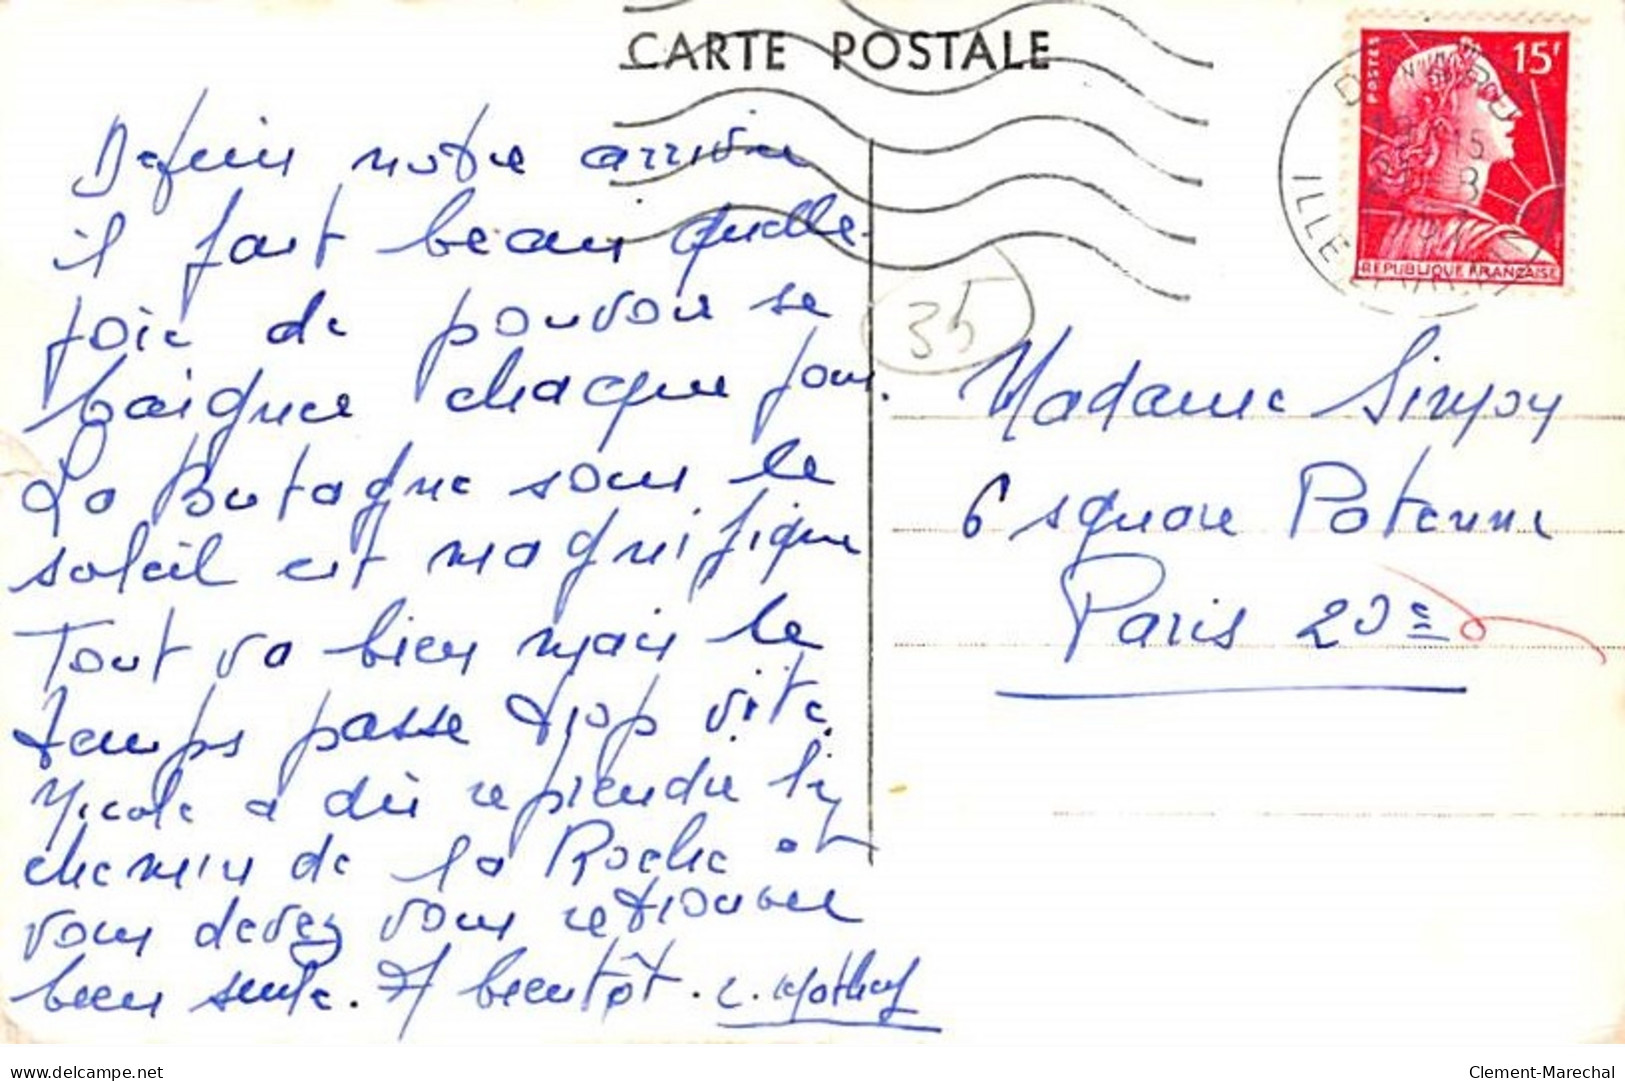 CARTE POSTALE
POSTES 15F
REPUBLIQUE FRANÇAISE
ILLE
35
Depuis notre arrivée
il fait beau quelle
joie de pouvoir se
baigner chaque jour.
La Bretagne sous le
soleil est magnifique
Tout va bien mais le
temps passe trop vite.
Nicole a dû reprendre le
chemin de la Roche et
vous devez vous retrouver
bien seule. A bientôt.
Madame
6 square Patenne
Paris 20e
Clement-Marechal
www.delcampe.net